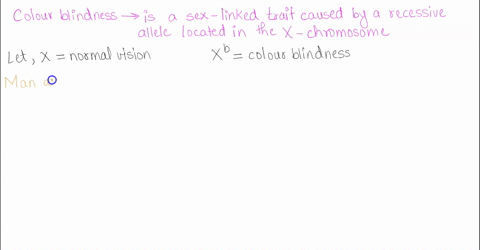 Colour blindness → is a sex-linked trait caused by a recessive
allele located in the X-chromosome
Let, X = normal vision X^b = colour blindness
Man